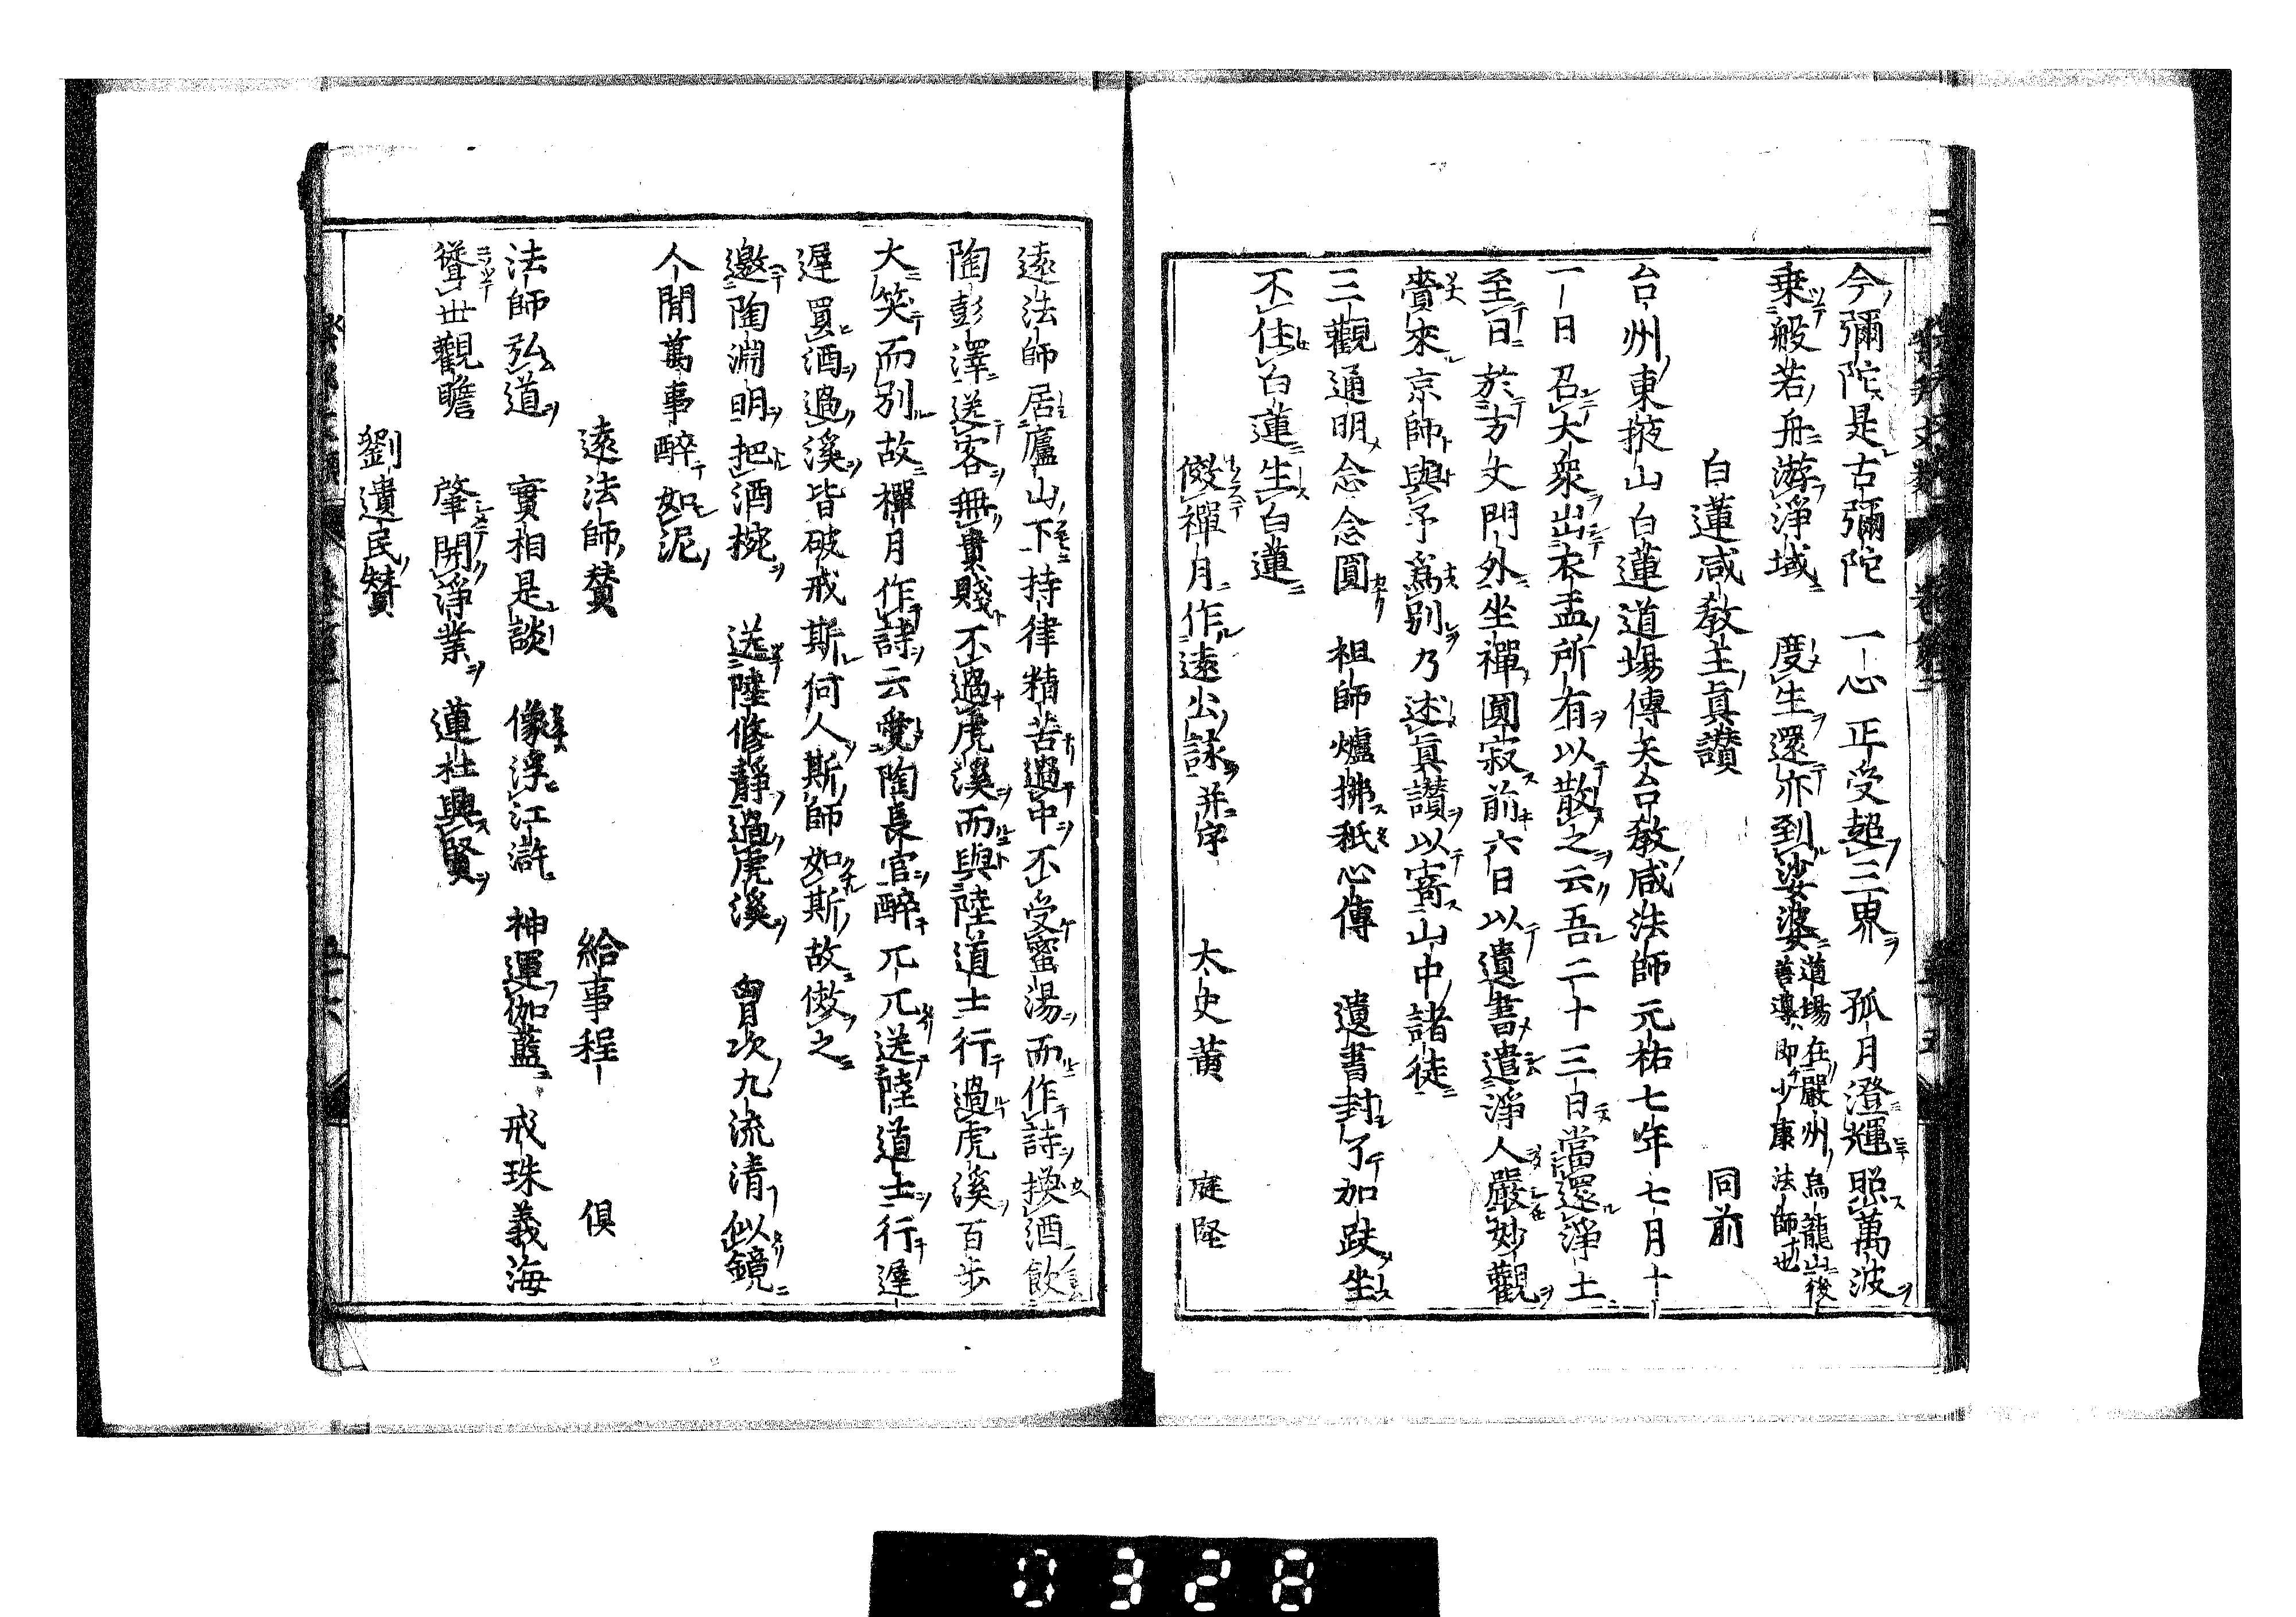 今彌陀是古彌陀　一心正受超三界　孤月澄輝照萬波
乗般若舟游淨域　度生還亦到娑婆　道場在嚴州烏龍山後善導即少康法師也
白蓮咸敎主真讚　同前
台州東掖山白蓮道場傳天台敎咸法師元祐七年七月十
一日召大衆出衣盂所有以散之云吾二十三日當還淨土
至日於方丈門外坐禪圓寂前六日以遺書遣淨人嚴妙觀
賷來京師與予爲別乃述真讚以寄山中諸徒
三觀通明念念圓　祖師爐拂秖心傳　遺書封了加趺坐
不住白蓮生白蓮
倣禪月作遠公詠并序　太史黄　庭堅
遠法師居廬山下持律精苦過中不受蜜湯而作詩換酒飲
陶彭澤送客無貴賤不過虎溪而與陸道士行過虎溪百步
大笑而別故禪月作詩云愛陶長官醉兀兀送陸道士行遲
遲買酒過溪皆破戒斯何人斯師如斯故倣之
邀陶淵明把酒椀　送陸修靜過虎溪　胷次九流清似鏡
人間萬事醉如泥
遠法師賛　給事程　俱
法師弘道　實相是談　像浮江滸　神運伽藍　戒珠義海
聳世觀瞻　肇開淨業　蓮社興賢
劉遺民賛
0328